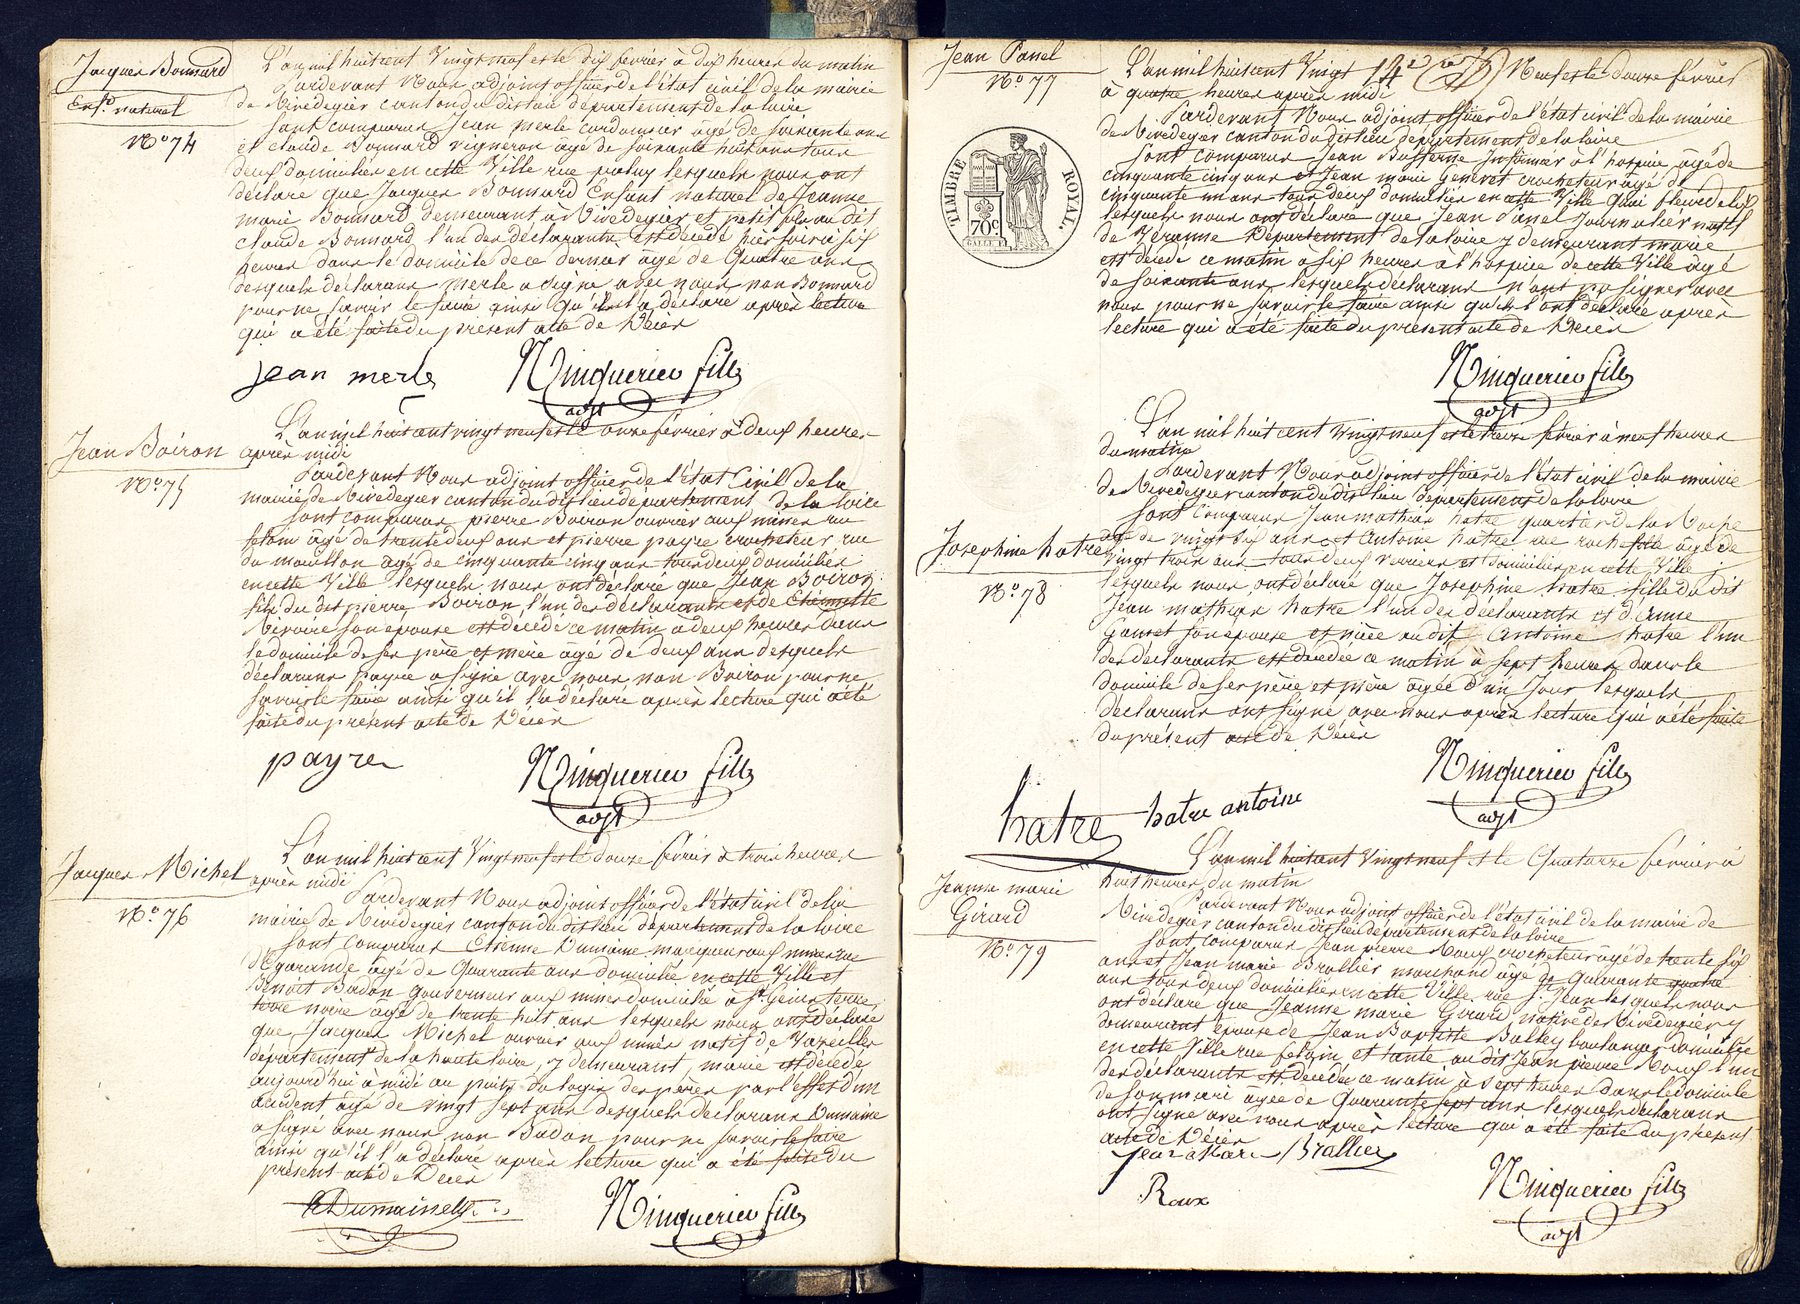 Jacques Bonnard
Enft. naturel
No. 74
L'an mil huit cent Vingt neuf et le dix février à dix heures du matin
Pardevant Nous adjoint officier de l'état civil de la mairie
de Rivedegier canton du dit lieu département de la loire
Sont comparus Jean Merle cordonnier âgé de soixante ans
et claude Bonnard vigneron âgé de soixante huit ans tous
deux domiciliés en cette Ville rue lesquels nous ont
déclaré que Jacques Bonnard Enfant naturel de Jeanne
marie Bonnard demeurant à Rivedegier et petit fils au dit
claude Bonnard l'un des déclarants est décédé hier soir à six
heures dans le domicile de ce dernier âgé de Quatre ans
desquels déclarans merle a signé avec nous non Bonnard
pour ne savoir le faire ainsi qu'il l'a déclaré après lecture
qui a été faite du présent acte de Décès
jean merle
Ninquerieu fils
adjt
Jean Boiron
No. 75
L'an mil huit cent vingt neuf et le onze février à deux heures
après midi
Pardevant Nous adjoint officier de l'état Civil de la
mairie de Rivedegier canton du dit lieu département de la loire
Sont comparus pierre Boiron ouvrier aux mines rue
feloin âgé de trente deux ans et pierre payre crocheteur rue
du mouillon âgé de cinquante cinq ans tous deux domiciliés
en cette Ville lesquels nous ont déclaré que Jean Boiron
fils du dit pierre Boiron, l'un des déclarants et de Etiennette
Rivoire son épouse est décédé ce matin à deux heures dans
le domicile de ses père et mère âgé de deux ans desquels
déclarans payre a signé avec nous non Boiron pour ne
savoir le faire ainsi qu'il l'a déclaré après lecture qui a été
faite du présent acte de Décès
payre
Ninquerieu fils
adjt
Jacques Michel
No. 76
L'an mil huit cent Vingt neuf et le douze février à trois heures
après midi
Pardevant Nous adjoint officier de l'état civil de la
mairie de Rivedegier canton du dit lieu département de la loire
Sont comparus Etienne Dumaine aux mines rue
d'Egarande âgé de Quarante ans domicilié en cette Ville et
Benoit Badon Gouverneur aux mines domicilié à St. Genis terre
noire âgé de trente huit ans lesquels nous ont déclaré
que Jacques Michel ouvrier aux mines natif de Vazeilles
département de la haute loire, y demeurant, marié est décédé
aujourd'hui à midi au puits du logis des pères par l'effet d'un
accident âgé de vingt sept ans desquels déclarans Dumaine
a signé avec nous non Badon pour ne savoir le faire
ainsi qu'il l'a déclaré après lecture qui a été faite du
présent acte de Décès
Dumaine
Ninquerieu fils
Jean Panel
No. 77
TIMBRE ROYAL.
70c.
L'an mil huit cent Vingt Neuf et le douze février
à quatre heures après midi
Pardevant Nous adjoint officier de l'état civil de la mairie
de Rivedegier canton du dit lieu département de la loire
Sont comparus Jean Basferne Infirmier à l'hospice âgé de
cinquante cinq ans et Jean marie Genevet crocheteur âgé de
cinquante un ans tous deux domiciliés en cette Ville Quai fleur de lix
lesquels nous ont déclaré que Jean Panel Journalier natif
de Département de la loire y demeurant marié
est décédé ce matin à six heures à l'hospice de cette Ville âgé
de soixante ans lesquels déclarans n'ont pu signer avec
nous pour ne savoir le faire ainsi qu'ils l'ont déclaré après
lecture qui a été faite du présent acte de Décès
Ninquerieu fils
adjt
L'an mil huit cent Vingt neuf et le treize février à neuf heures
du matin
Pardevant Nous adjoint officier de l'état civil de la mairie
de Rivedegier canton du dit lieu département de la loire
Josephine hatre
No. 78
Sont Comparus Jean mathias hatre quartier de la Roche
âgé de vingt six ans et Antoine hatre rue rochefolle âgé de
vingt trois ans tous deux verriers et domiciliés en cette Ville
lesquels nous ont déclaré que Josephine hatre fille du dit
Jean mathias hatre l'un des déclarants et d'Anne
Gauset son épouse et nièce au dit Antoine hatre l'un
des déclarants est décédée ce matin à sept heures dans le
domicile de ses père et mère âgée d'un Jour lesquels
déclarans ont signé avec nous après lecture qui a été faite
du présent acte de Décès
Ninquerieu fils
adjt
hatre
hatre antoine
Jeanne marie
Girard
No. 79
L'an mil huit cent Vingt neuf et le Quatorze février à
huit heures du matin
Pardevant Nous adjoint officier de l'état civil de la mairie de
Rivedegier canton du dit lieu département de la loire
Sont comparus Jean pierre Roux crocheteur âgé de trente six
ans et Jean marie Brallier marchand âgé de Quarante quatre
ans tous deux domiciliés en cette Ville rue St. Jean lesquels nous
ont déclaré que Jeanne marie Girard native de Rivedegier y
demeurant épouse de Jean Baptiste Balley boulanger domicilié
en cette Ville rue feloin et tante au dit Jean pierre Roux l'un
des déclarants est décédée ce matin à sept heures dans le domicile
de son mari âgée de Quarante sept ans lesquels déclarans
ont signé avec nous après lecture qui a été faite du présent
acte de Décès
Jean Marie Brallier
Roux
Ninquerieu fils
adjt